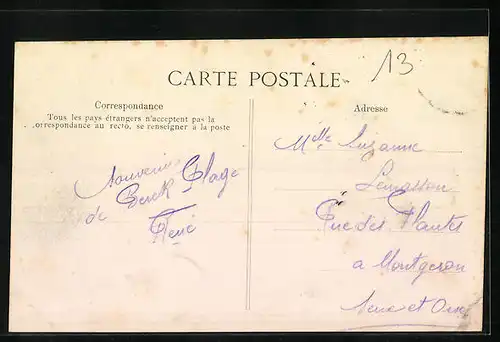 13
CARTE POSTALE
Correspondance
Tous les pays étrangers n'acceptent pas la
correspondance au recto, se renseigner à la poste
Adresse
Souvenir
de Berck Plage
René
Melle Suzanne
Lemasson
Rue des Plantes
a Montgeron
Seine et Oise